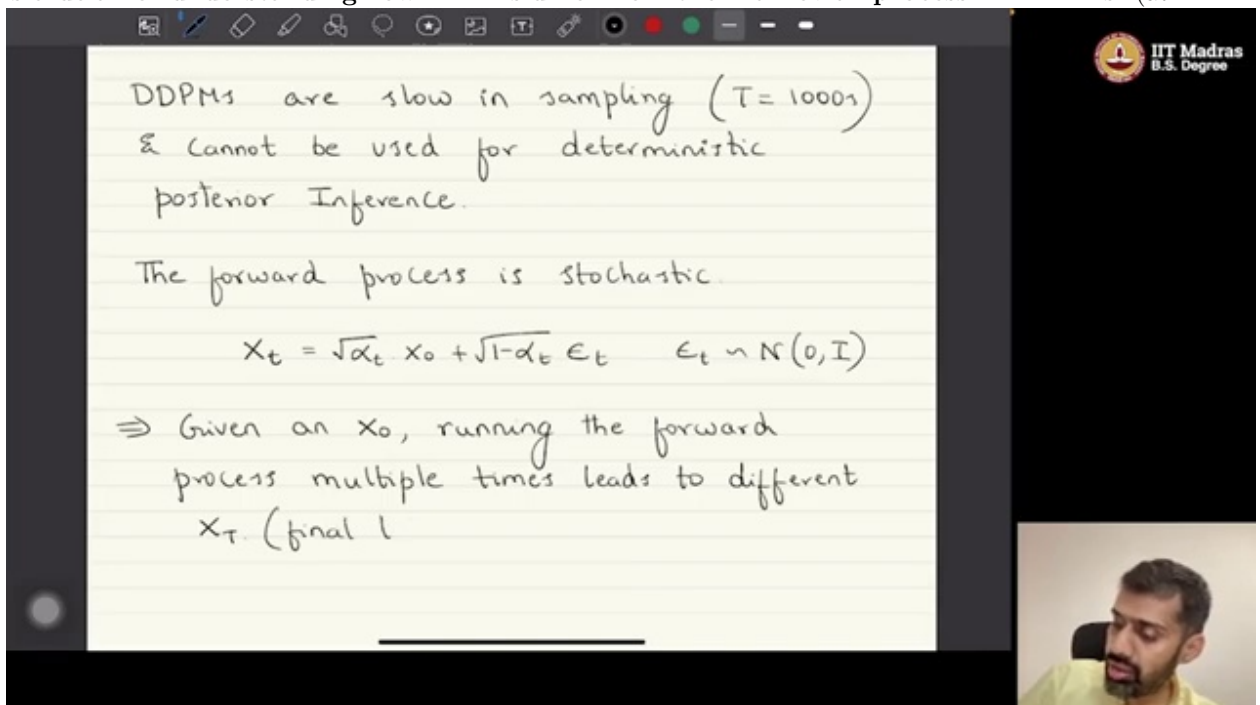 IIT Madras
B.S. Degree
DDPMs are slow in sampling (T = 1000s)
& Cannot be used for deterministic
posterior Inference.
The forward process is stochastic.
X_t = √α_t X_0 + √1-α_t ϵ_t ϵ_t ~ N(0, I)
⇒ Given an X_0, running the forward
process multiple times leads to different
X_T. (final l